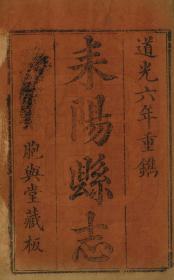 道光六年重鐫
耒陽縣志
胞與堂藏板